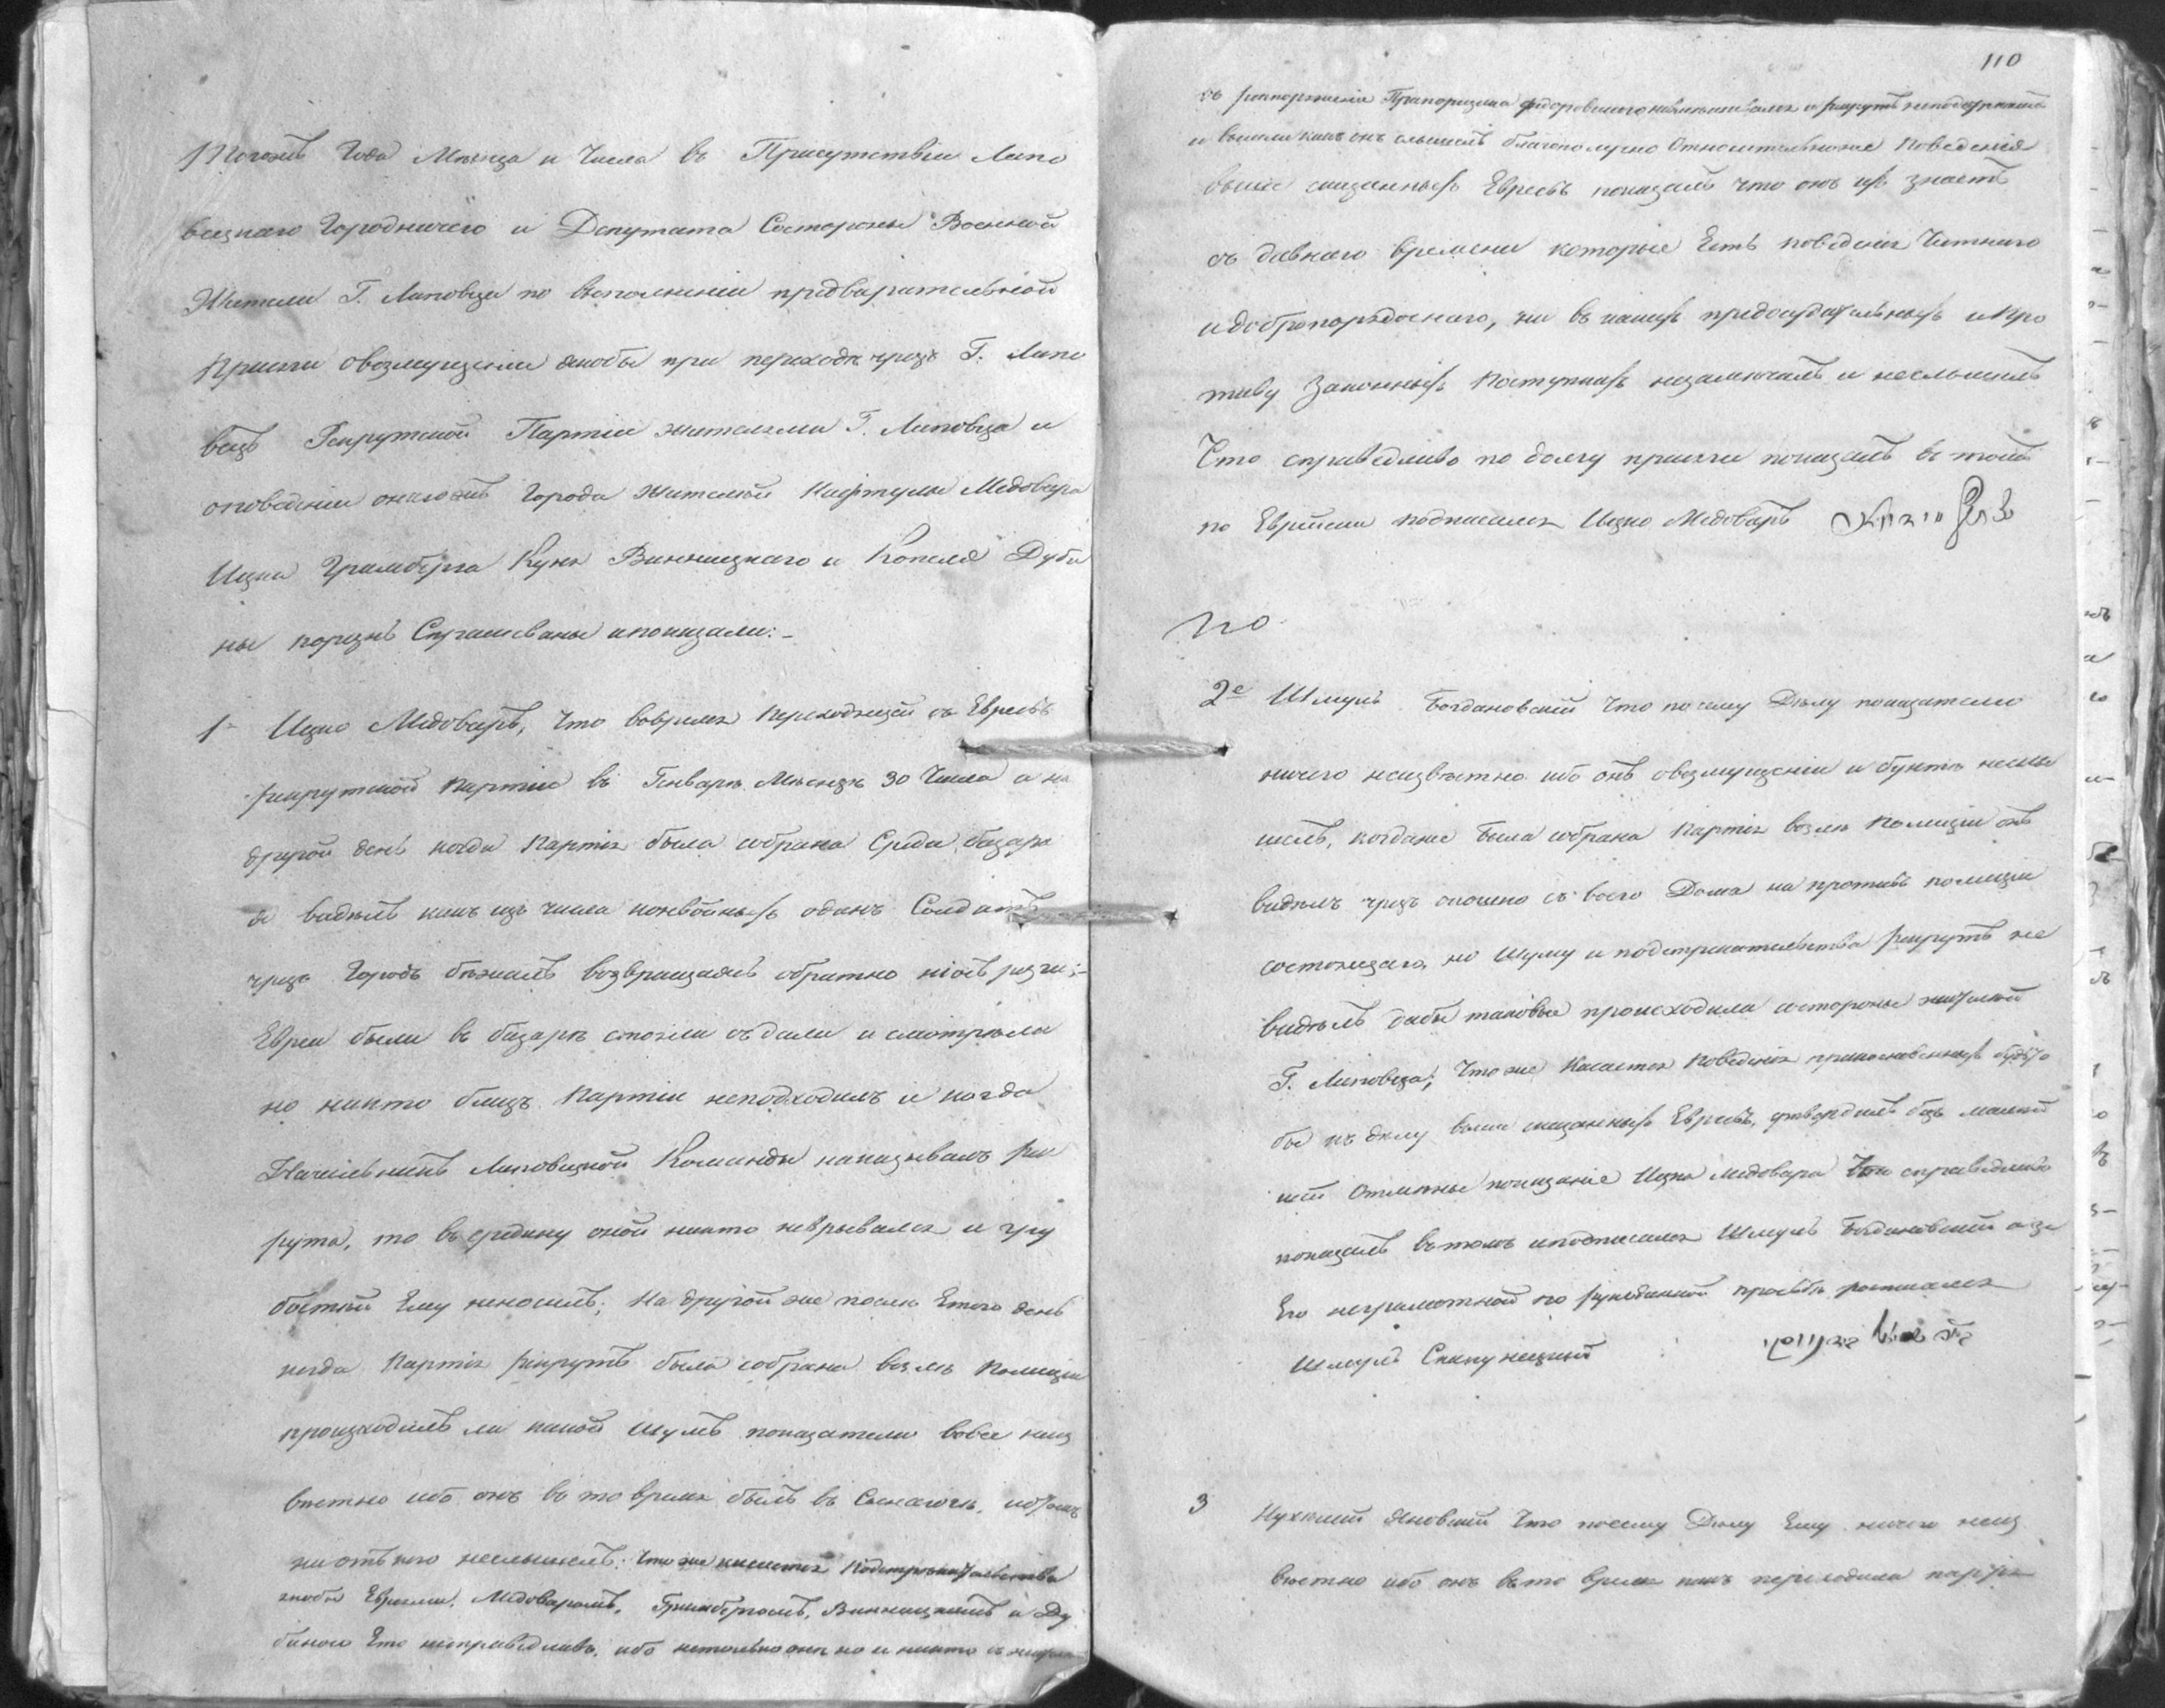 Тогожъ Года Мѣсяца и Числа въ Присутствіи Липо
вецкаго Городничего и Депутата Состороны Военной
Жители Г. Липовца по выполненіи предварительной
присяги овозмущеніи якобы при переходѣ чрезъ Г. Липо
вецъ Рекрутской Партіи жителями Г. Липовца и
оповеденіи онагожъ Города жителей Нафтулы Медовара
Ицка Гринберга Куны Винницкаго и Копеля Дуби
ны порознь Спрашиваны ипоказали:-
1 Ицко Медоваръ, Что вовремя Переходящей съ Евреевъ
рекрутской партіи въ Генварѣ Мѣсяцѣ 30 Числа а на
другой день когда партія была собрана Среди базара
видѣлъ какъ изъ числа конвойныхъ одинъ Солдатъ
чрезъ Городъ бѣжалъ возвращаясь обратно розги;-
Евреи были въ базарѣ стояли съдали и смотрѣли
но никто близъ партіи неподходилъ и когда
Начальникъ Липовецкой Команды наказывалъ рек
рута, то въ средину оной никто неврывался и гру
бостей Ему неносилъ; На другой же послѣ Етого день
когда партія рекрутъ была собрана возлѣ Полиціи
происходилъ ли какой шумъ показателю вовсе неиз
вѣстно ибо онъ въ то время былъ въ Сынагогѣ,
ниотъ кого неслышелъ: Что же касается Подстрѣкательства
якобы Евреями, Медоваромъ, Гринбергомъ, Винницкимъ и Ду
биною Ето несправедливо, ибо нетолько они но и никто съ
110
съ Прапорщика рекрутъ
и вышли какъ онъ слышелъ благополучно Относительноже поведенія
выше сказанныхъ Евреевъ показалъ что онъ ихъ знаетъ
съ давнаго времени которые Есть поведенія Честнаго
идобропорядочнаго, ни въ какихъ предосудительныхъ ипро
тиву Законныхъ Поступкахъ незамѣчалъ и неслышелъ
Что справедливо по долгу присяги показалъ въ томъ
по Еврейски подписался Ицко Медоваръ
по
2е Шмуль Богдановскій Что по сему Дѣлу показателю
ничего неизвѣстно ибо онъ овозмущеніи и бунтѣ неслы
шелъ, когдаже была собрана партія возлѣ Полиціи онъ
видѣлъ чрезъ окошко съ воего Дома на противъ полиціи
состоящаго, но Шуму и подстрекательства рекрутъ не
видѣлъ дабы таковые происходили состороны жителей
Г. Липовца; Что же Касается Поведенія прикосновенныхъ будьто
бы къ дѣлу выше сказанныхъ Евреевъ, утвердилъ безъ малей
шей Отмѣны показаніе Ицка Медовара Что справедливо
показалъ вътомъ иподписался Шмуль Богдановскій а за
Его неграмотной по рукоданной просьбѣ росписался
Шмуль
3 Яновскій Что посему Дѣлу Ему ничего неиз
вѣстно ибо онъ въ то время какъ переходила партія